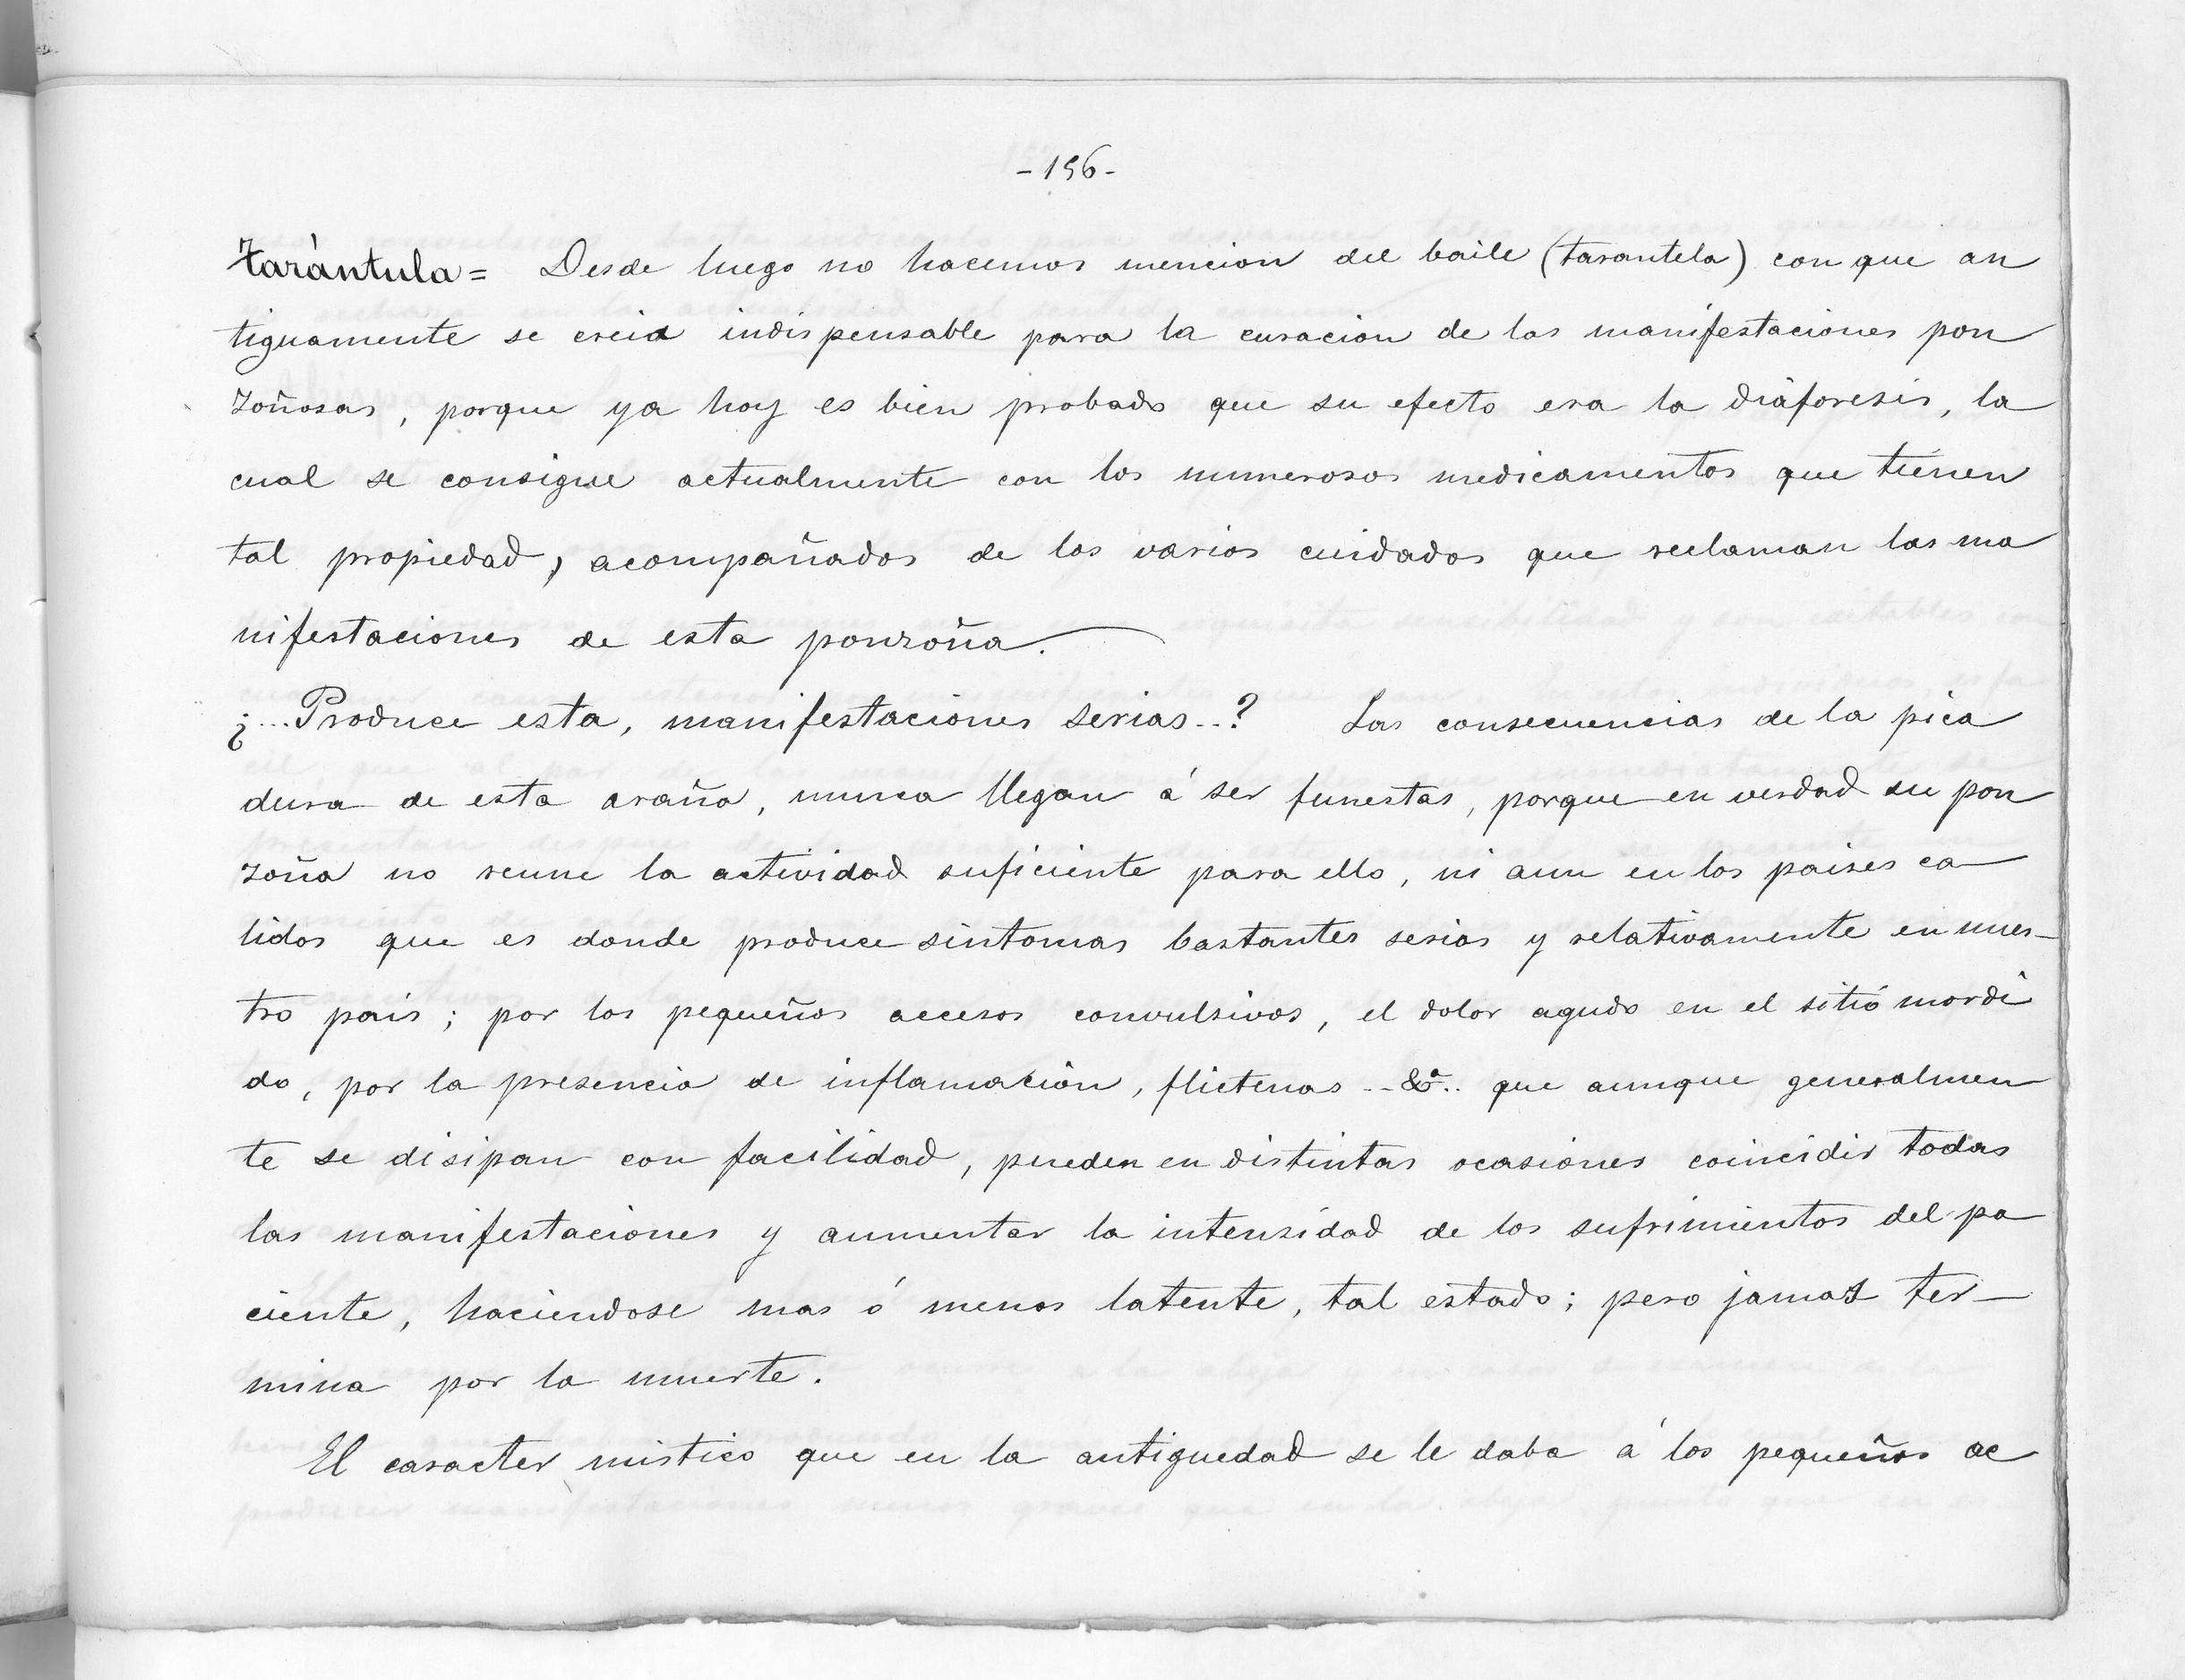 -156-
Tarántula = Desde luego no hacemos mencion del baile (tarantela) con que an
tiguamente se creia indispensable para la curacion de las manifestaciones pon
zoñosas, porque ya hoy es bien probado que su efecto era la diáforesis, la
cual se consigue actualmente con los numerosos medicamentos que tienen
tal propiedad, acompañados de los varios cuidados que reclaman las ma
nifestaciones de esta ponzoña.
¿...Produce esta, manifestaciones serias..? Las consecuencias de la pica
dura de esta araña, nunca llegan á ser funestas, porque en verdad su pon
zoña no reune la actividad suficiente para ello, ni aun en los paises ca
lidos que es donde produce sintomas bastantes serios y relativamente en nues-
tro pais; por los pequeños accesos convulsivos, el dolor agudo en el sitio mordi
do, por la presencia de inflamación, flictenas -- &ª.. que aunque generalmen
te se disipan con facilidad, pueden en distintas ocasiones coincidir todas
las manifestaciones y aumentar la intensidad de los sufrimientos del pa
ciente, haciendose mas ó menos latente, tal estado; pero jamas ter-
mina por la muerte.
El caracter mistico que en la antiguedad se le daba á los pequeños ac